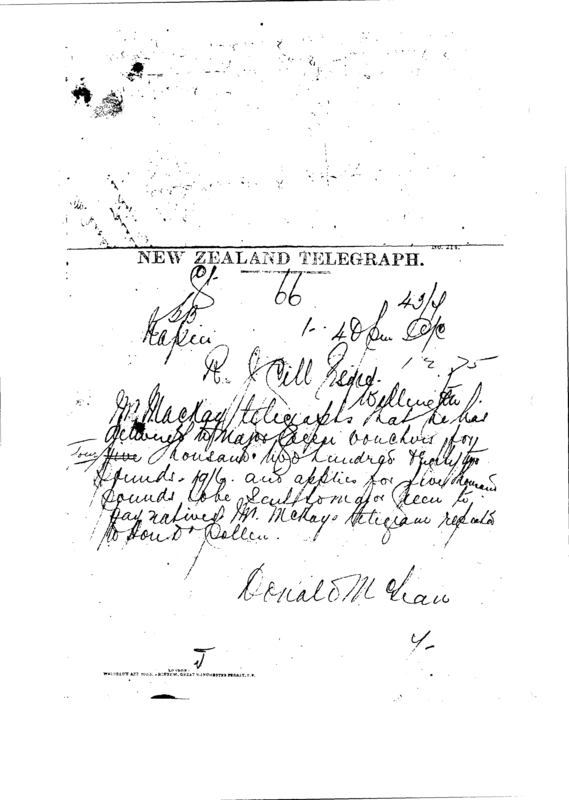 No. 214.
NEW ZEALAND TELEGRAPH.
66
43/4
Napier
1.. 40 pm
R. J Gill Esqre.
Wellington
Mr Mackay telegraphs that he has
delivered to Major Green vouchers for
Four five thousand two hundred & thirty two
pounds. 19/6. and applies for five thousand
pounds to be sent to major Green to
pay natives Mr. McKays telegram repeated
to Hon Dr Pollen.
Donald McLean
4-
LONDON